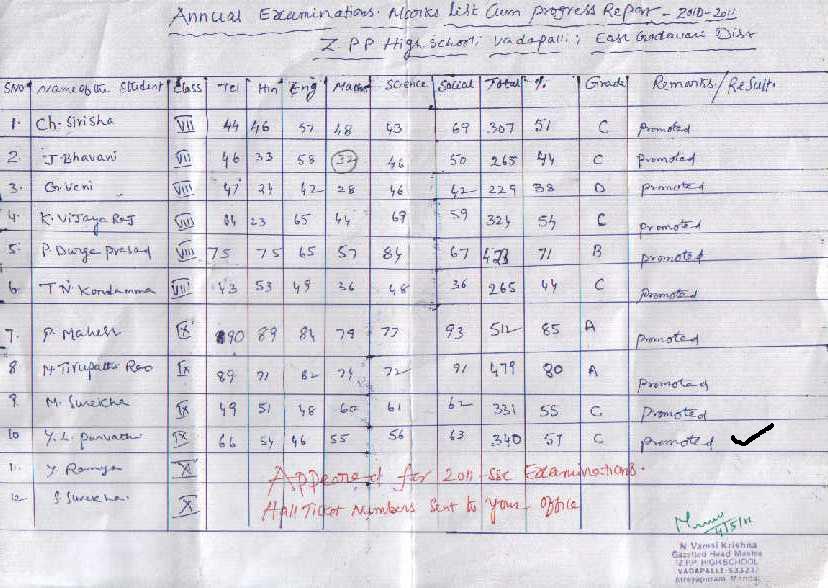 Annual Examinations. Marks List Cum Progress Report - 2010-2011
Z PP High School, Vadapalli, East Godavari Dist
SNo Name of the Student Class Tel Hin Eng Maths Science Social Total % Grade Remarks/Result.
1. Ch. Sirisha VII 44 46 57 48 43 69 307 51 C promoted
2 J. Bhavani VII 46 33 58 32 46 50 265 44 C promoted
3. G. Veni VIII 47 24 42 28 46 42 229 38 D promoted
4. K. Vijaya Raj VIII 84 23 65 44 69 59 324 54 C promoted
5. P. Durga prasad VIII 75 75 65 57 84 67 423 71 B promoted
6. T N Kondamma VIII 43 53 49 36 48 36 265 44 C promoted
7. P. Mahesh IX 90 89 84 79 77 93 512 85 A Promoted
8 N. Tirupathi Rao IX 89 71 82 74 72 91 479 80 A promoted
9 M. Surekha IX 49 51 48 60 61 62 331 55 C Promoted
10 Y. L. parvathi IX 66 54 46 55 56 63 340 57 C promoted
11 Y Ramya X Appeared for 2011-SSC Examinations.
12 S Surekha X Hall Ticket Numbers Sent to your office
4/5/11
N Vamsi Krishna
Gazetted Head Master
Z.P.P. HIGH SCHOOL
VADAPALLE-533237
Atreyapuram Mandal